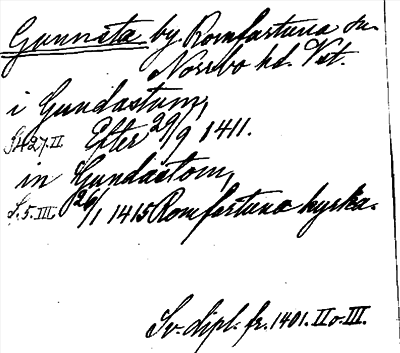 Gunnsta by Romfartuna sn.
Norrbo hd. Vst.
i Gundastum,
S. 427. II. Efter 29/9 1411.
in Gundastom,
S. 5. III. 26/1 1415 Romfartuna kyrka.
Sv. dipl. fr. 1401. II o. III.